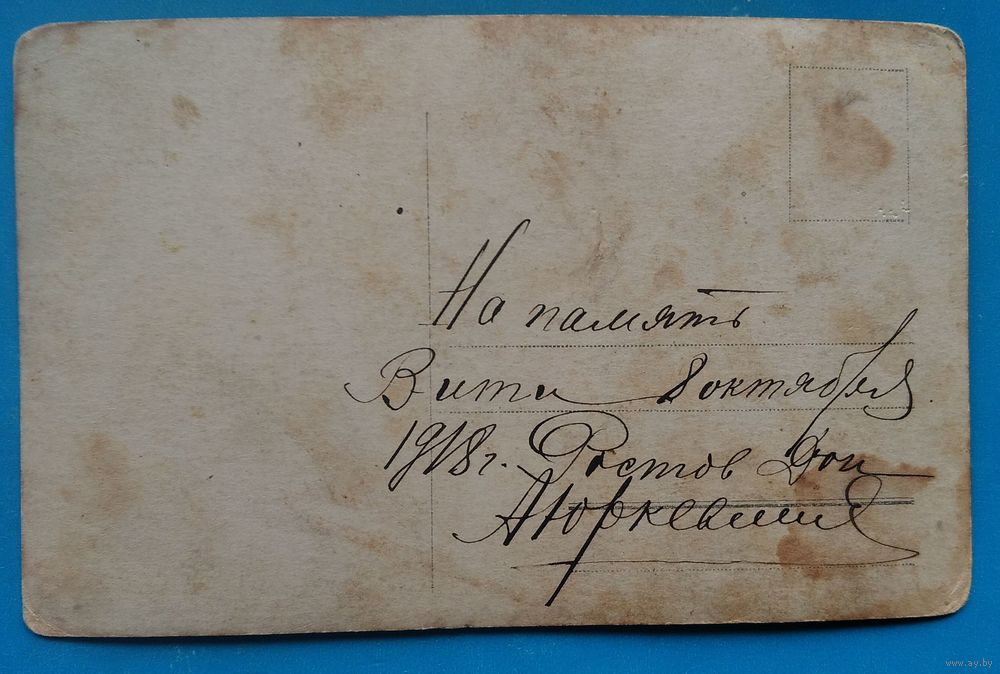 На память
Вити 8 октября
1918 г. Ростов Дон
АЮркевич
www.ay.by